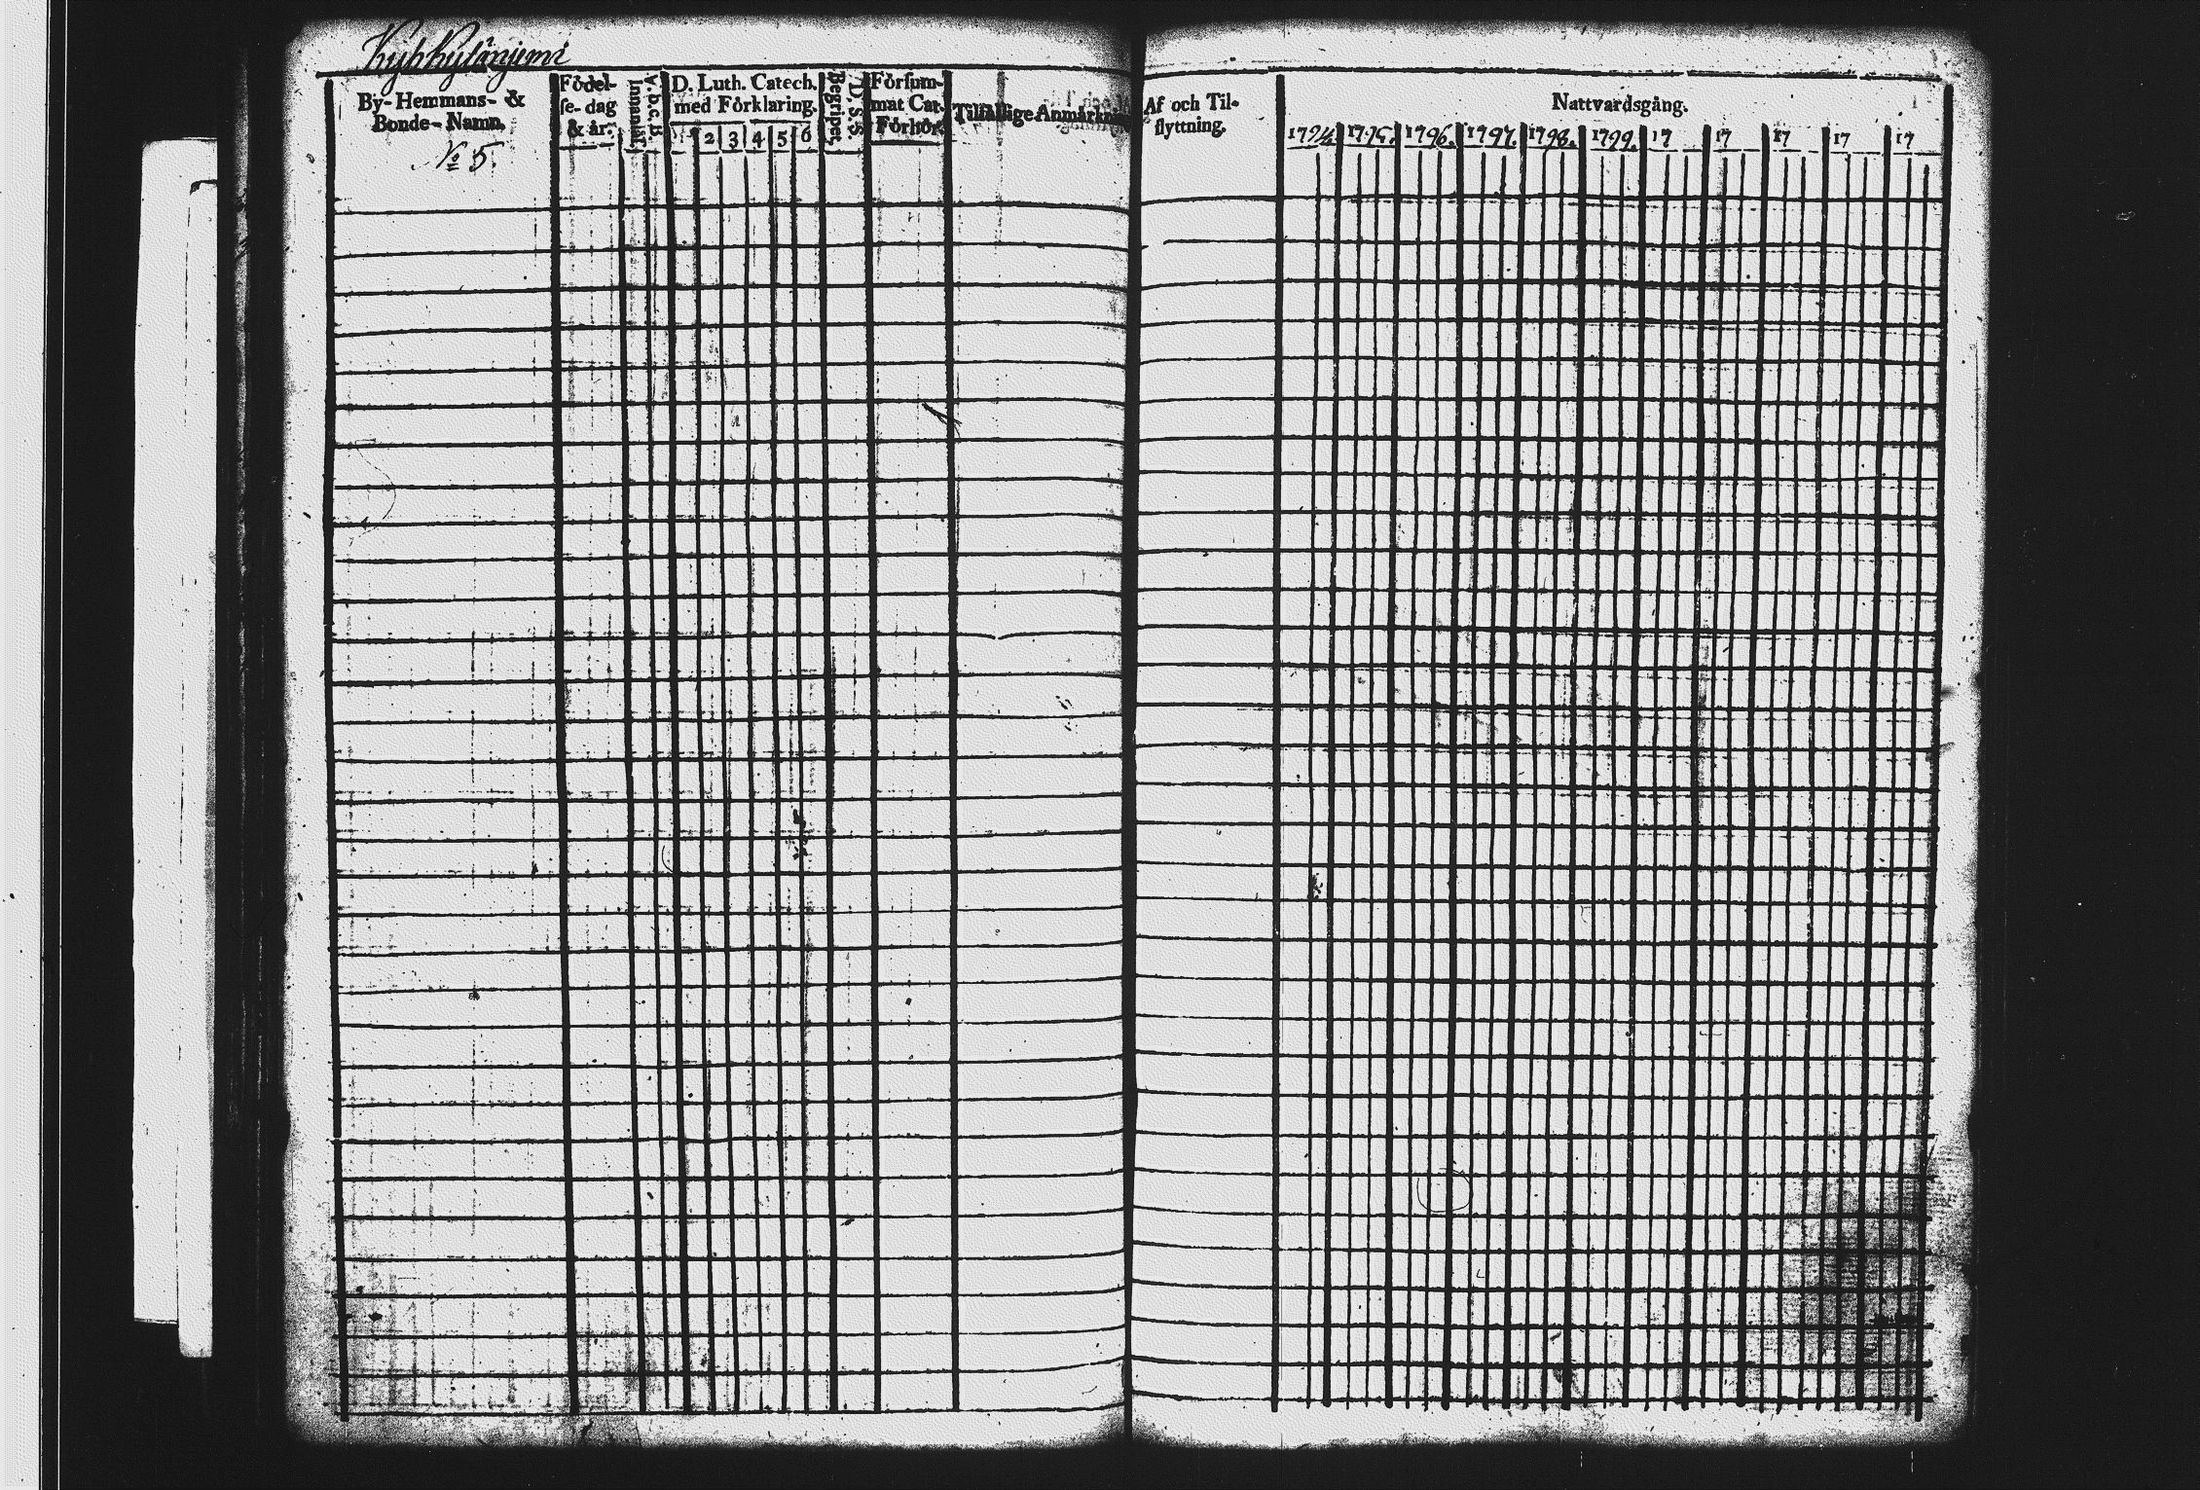 Kyhkylänjemi
By- Hemmans- & Bonde- Namn.
No 5.
Födel-
se- dag
& år.
Innanläs.
A. b. c. B.
D. Luth. Catech.
med Förklaring.
1 2 3 4 5 6
Begripet.
D. S. S.
Försum-
mat Cat.
Förhör.
Tilfällige Anmärkn
Af och Til-
flyttning.
Nattvardsgång.
1794. 1795. 1796. 1797. 1798. 1799. 17 17 17 17 17